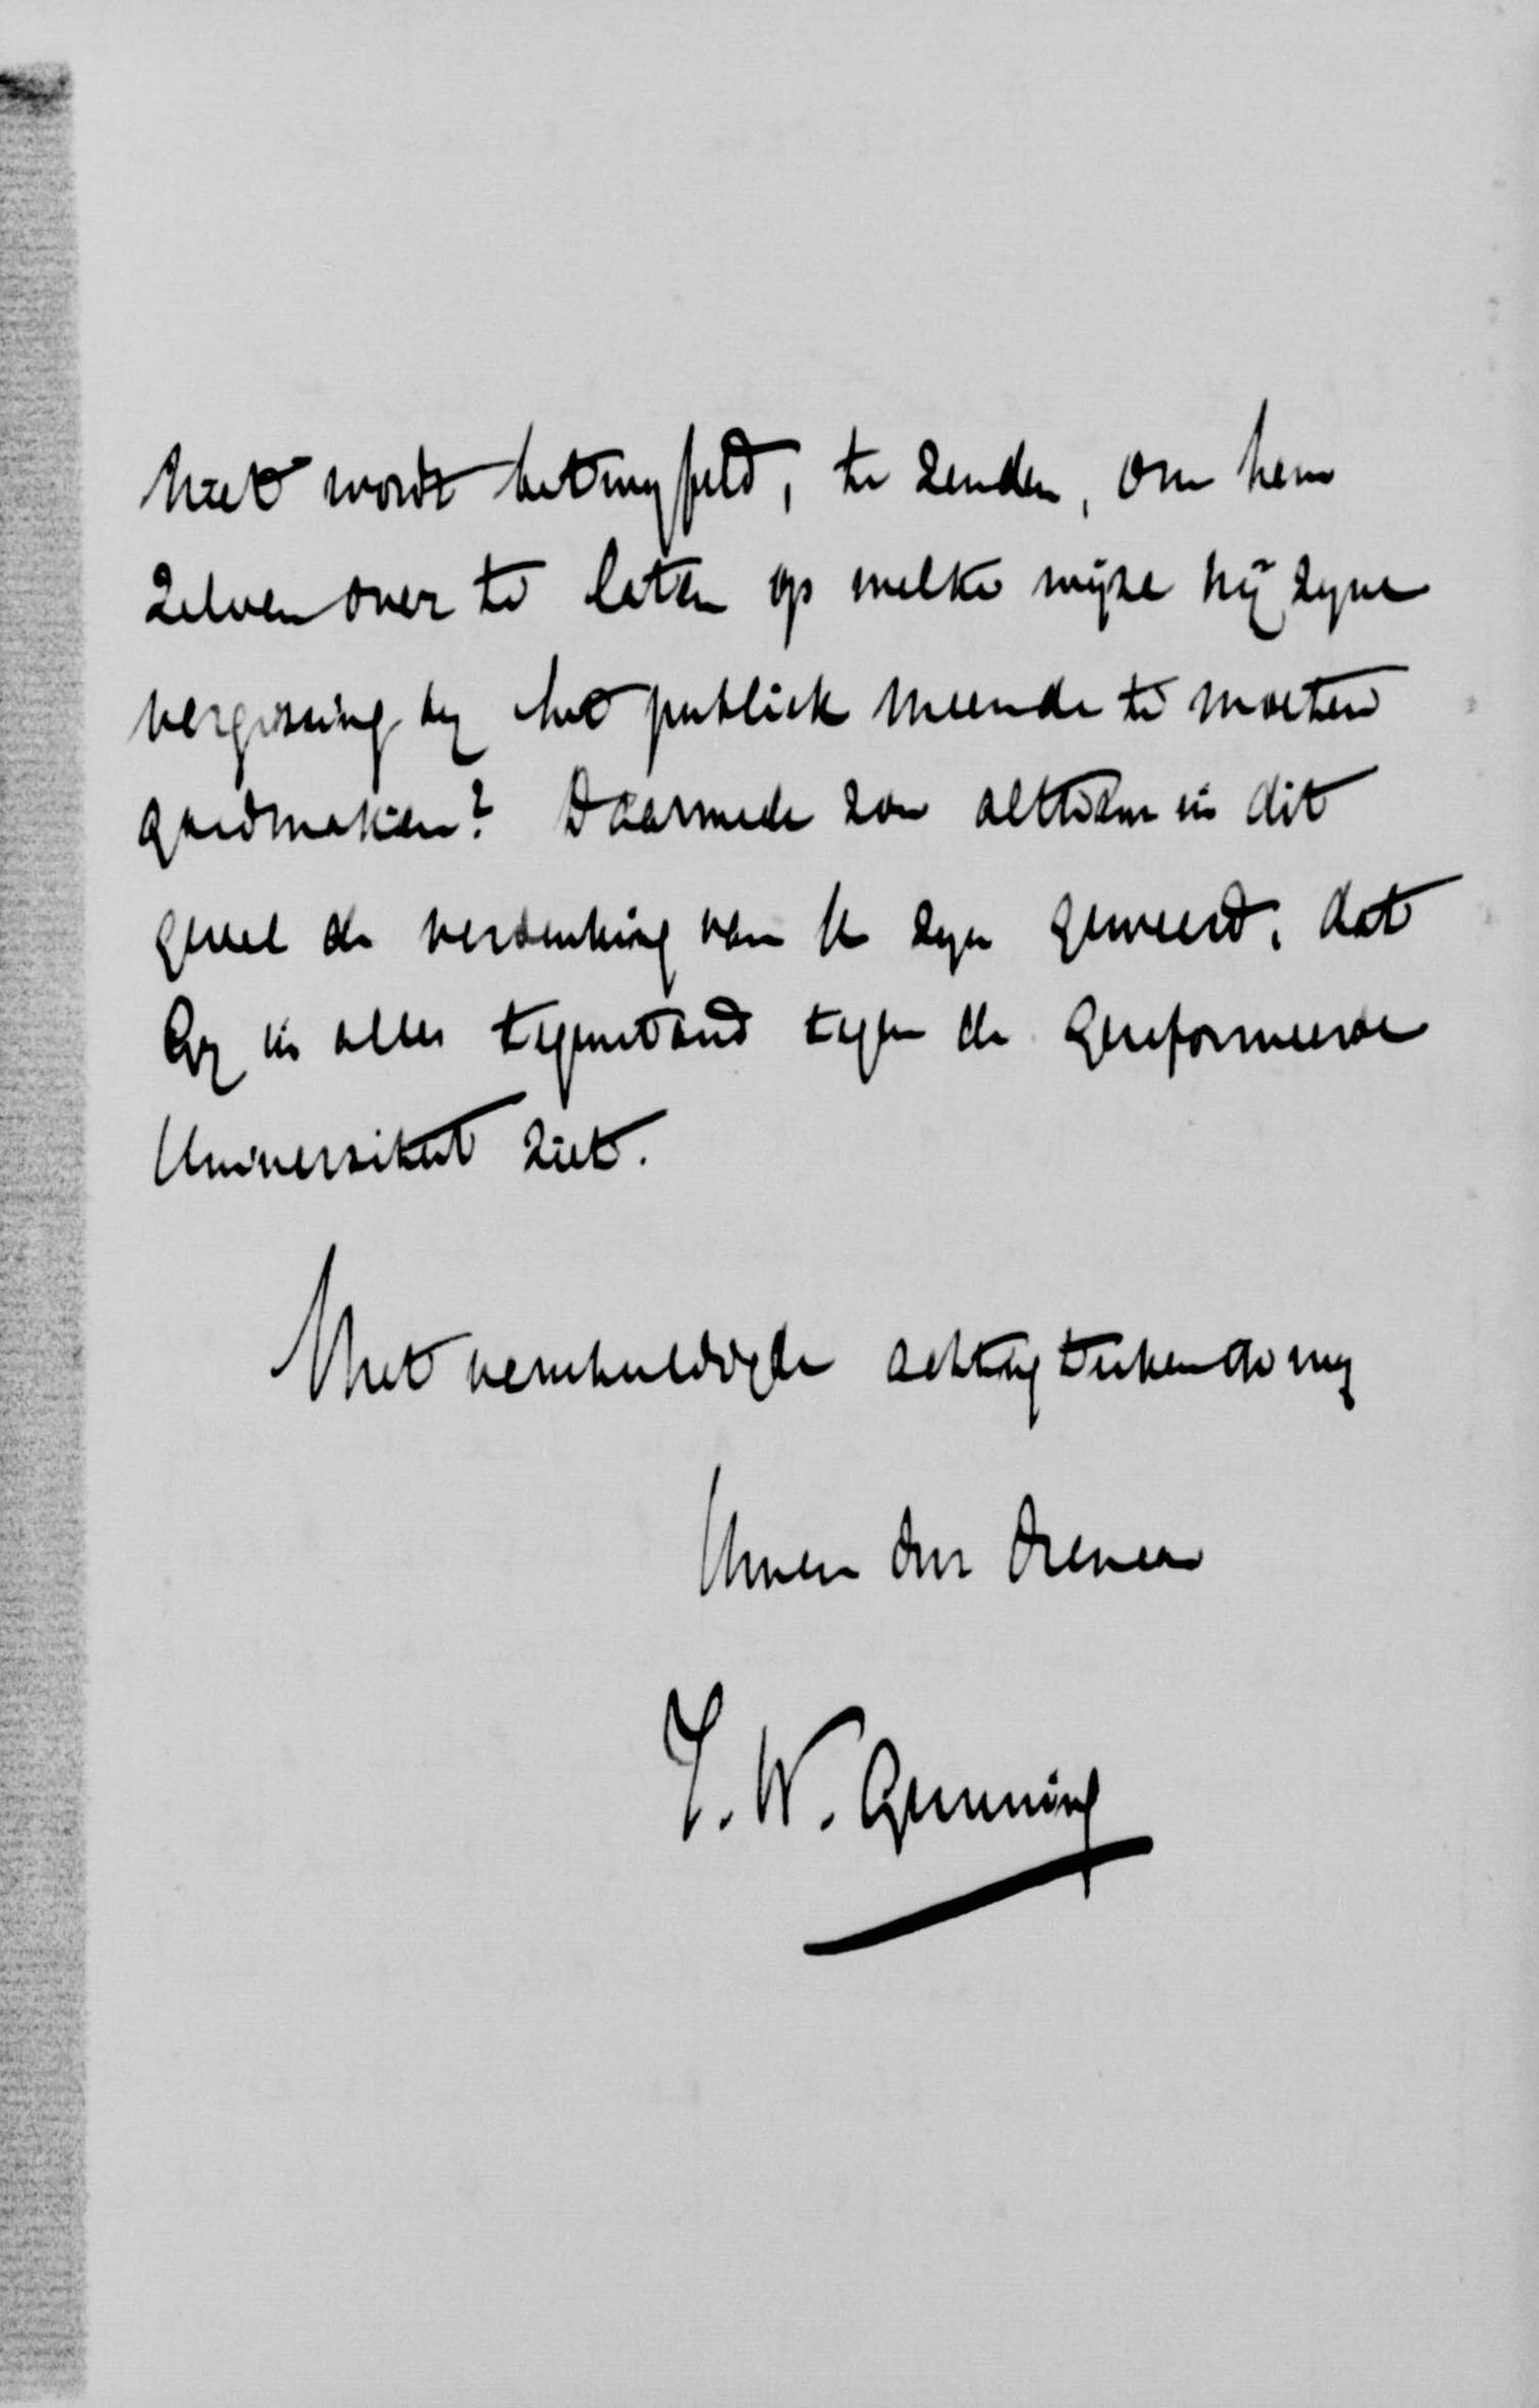 niet wordt betwyfeld, te zenden, om hem
zelven over te laten op welke wijze hij zyne
vergissing by het publiek meende te moeten
goedmaken? Daarmede zou althans in dit
geval de verdenking van U zyn geweerd, dat
Gy in alles tegenstand tegen de Gereformeerde
Universiteit ziet.
Met verschuldigde achting teeken ik my
Uwen dw Dienaar
J. W. Gunning